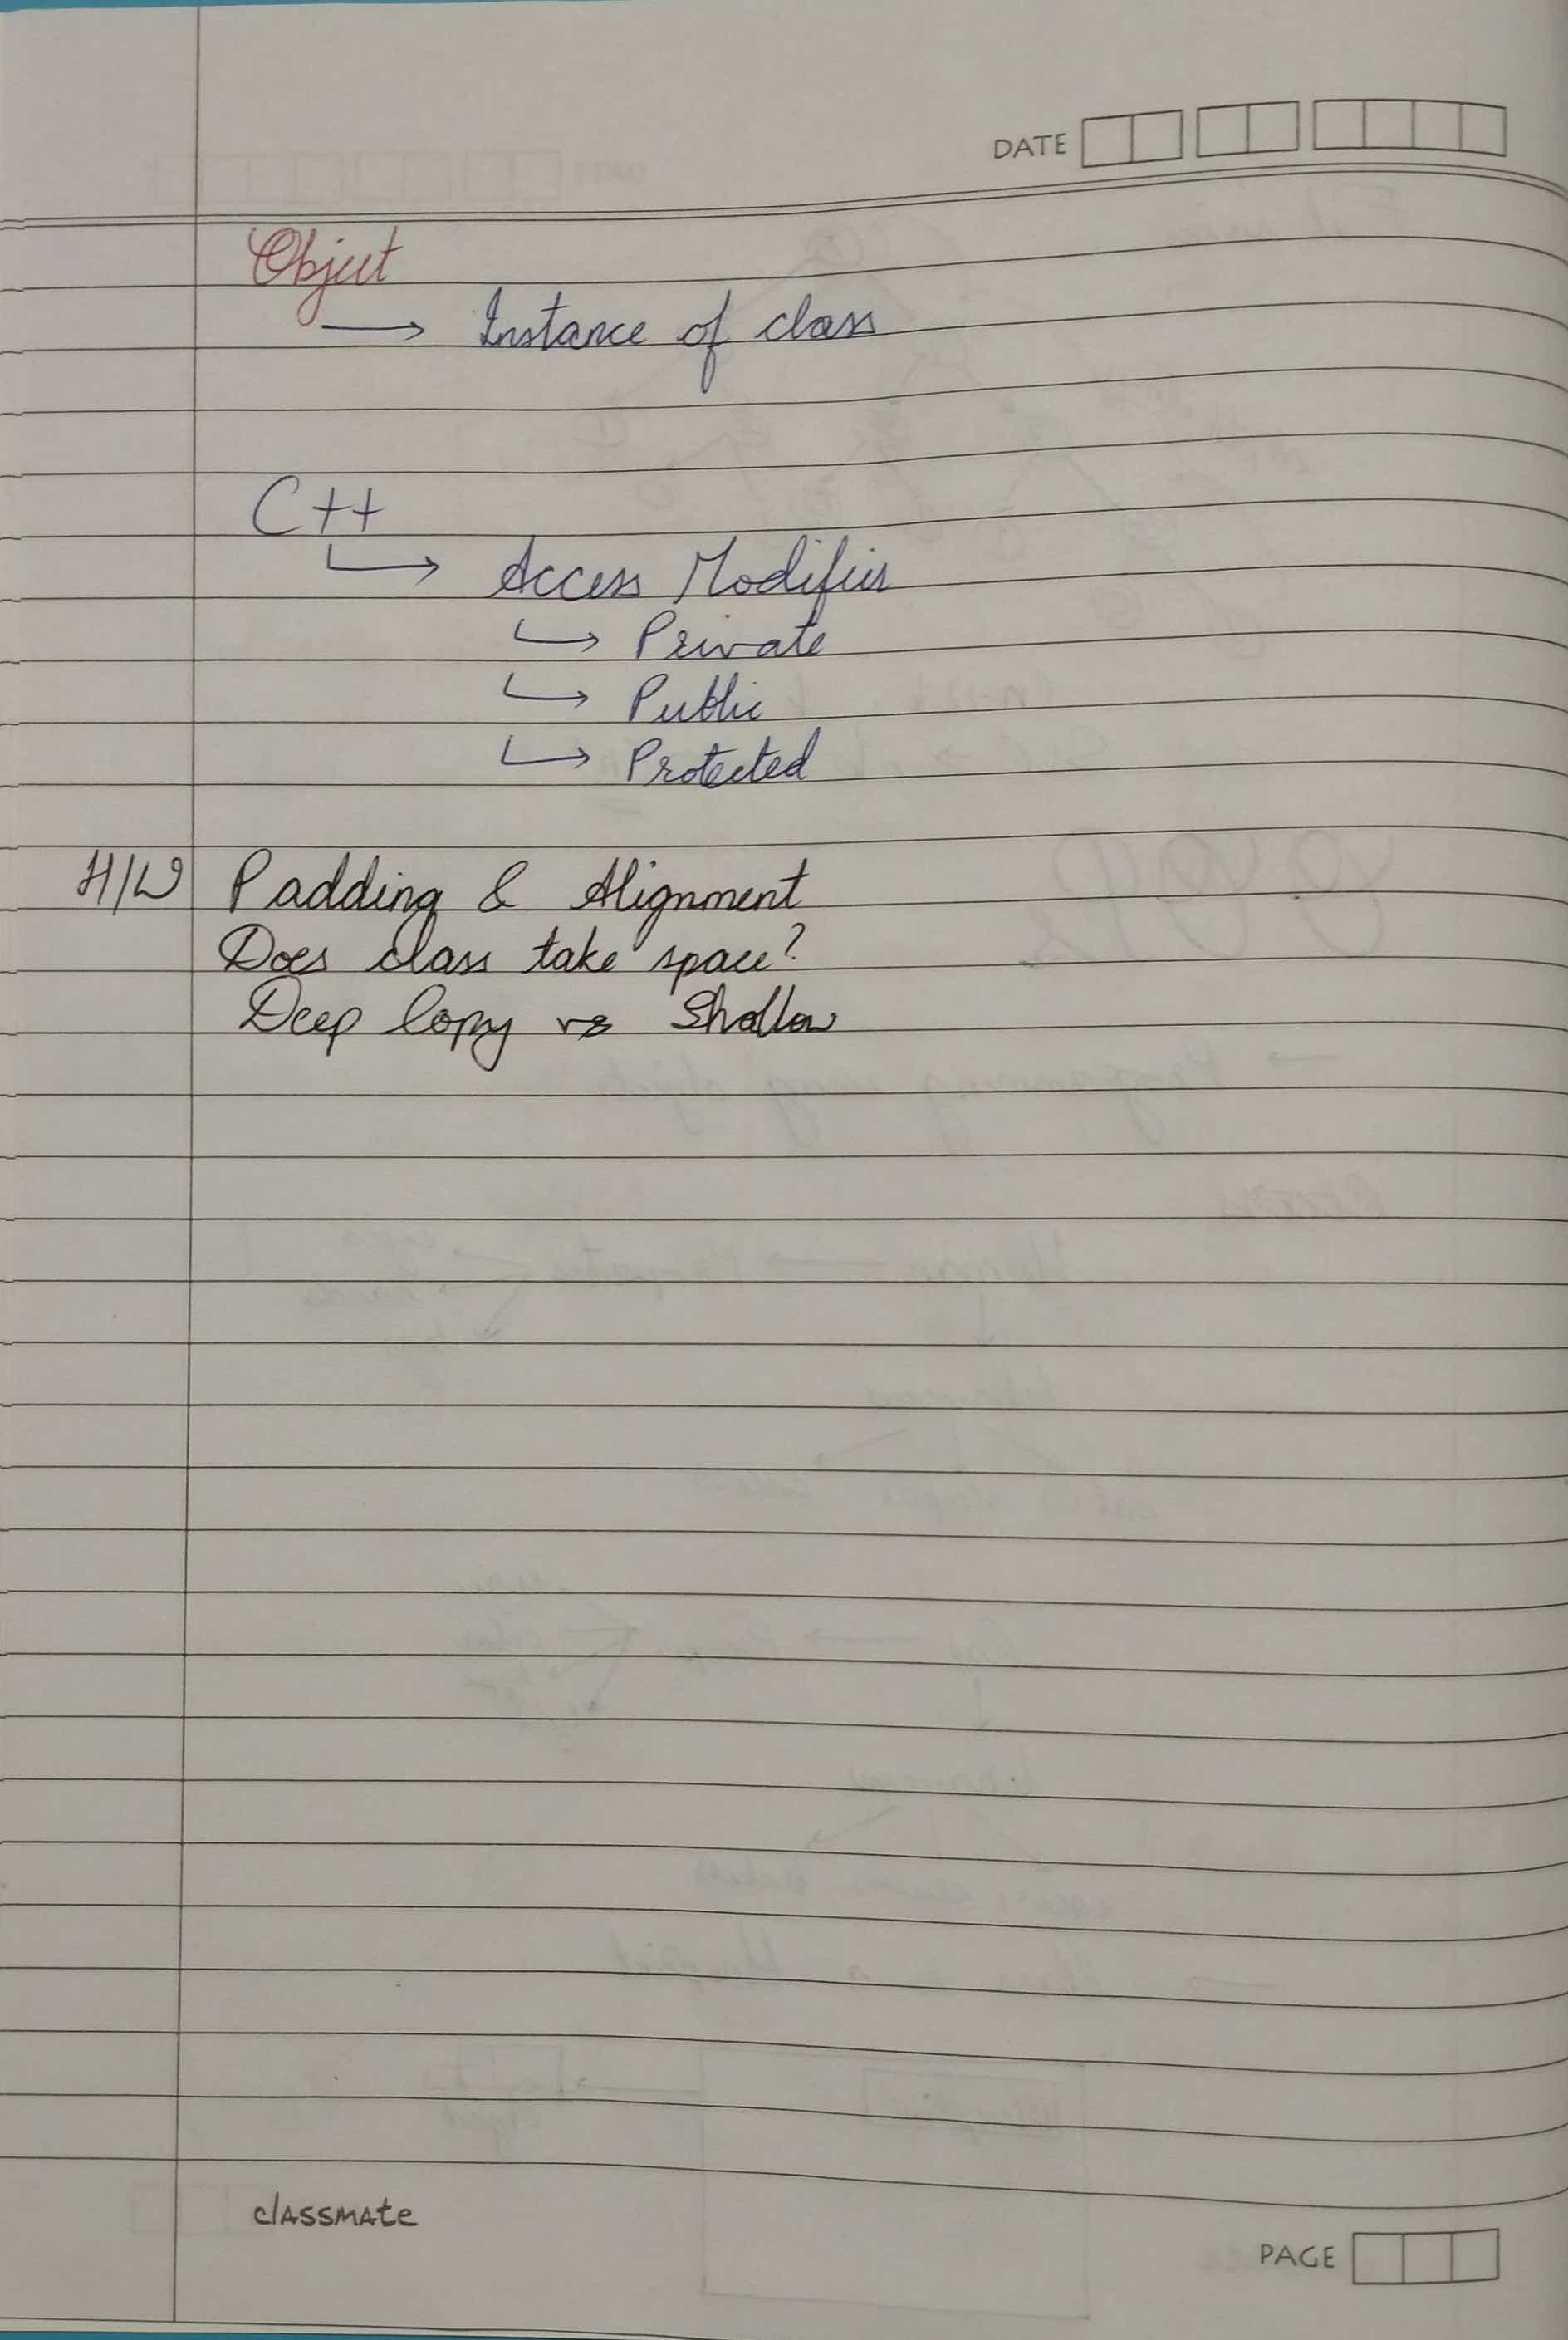 DATE
Object
→ Instance of class
C++
↳ Access Modifier
↳ Private
↳ Public
↳ Protected
H/W Padding & Alignment
Does class take space?
Deep Copy vs Shallow
classmate
PAGE